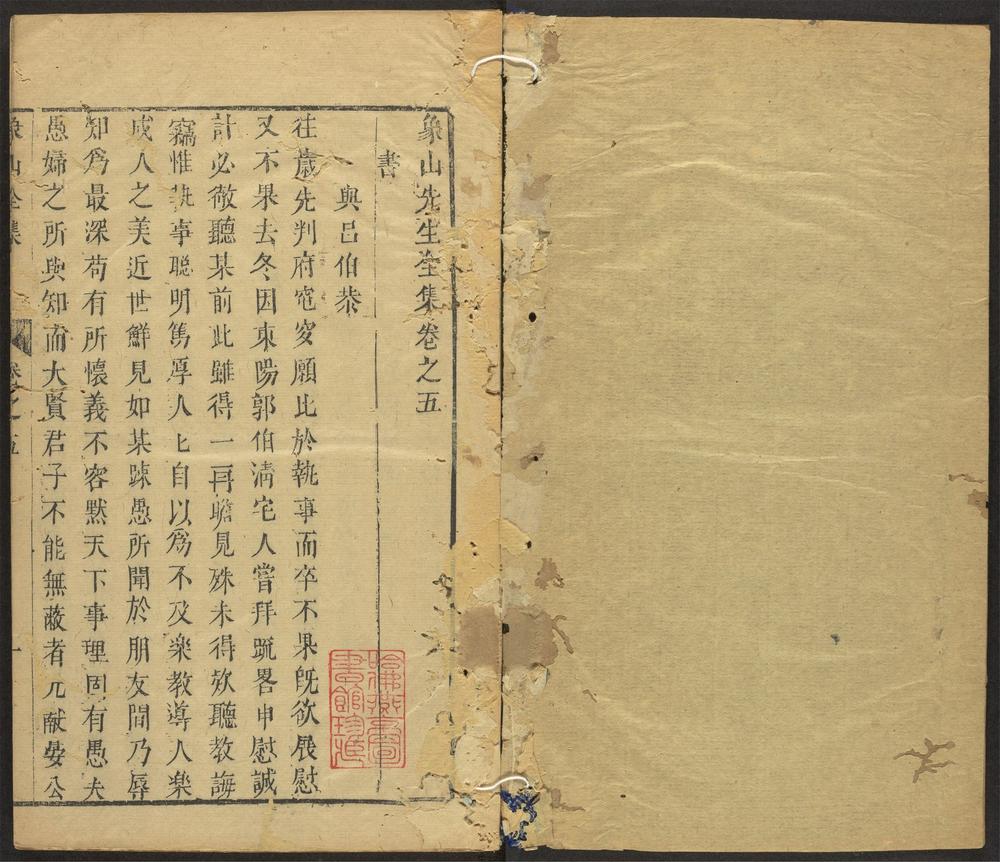 象山先生全集卷之五
書
與呂伯恭
往歲先判府窀穸願比於執事而卒不果旣欲展慰
又不果去冬因東陽郭伯淸宅人嘗拜疏畧申慰誠
計必徹聽某前此雖得一再瞻見殊未得欵聽教誨
竊惟執事聰明篤厚人匕自以爲不及樂教導人樂
成人之美近世鮮見如某踈愚所聞於朋友間乃辱
知爲最深苟有所懷義不容黙天下事理固有愚夫
愚婦之所與知而大賢君子不能無蔽者元献晏公
象山全集 卷之五 一
哈佛燕京圖書館珍藏